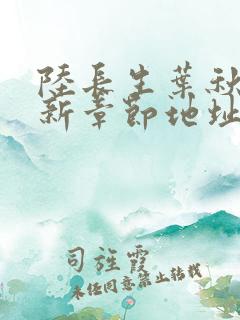 陸長生葉秋
新章節地址
司旌霞
未经同意禁止转载